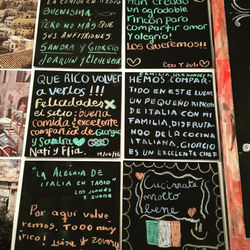 BUENISIMA
PERO NO MÁS QUE
SUS ANFITRIONES
SANDRA y GIORGIO
JOAQUIN y
han creado
un agradable
rincón para
compartir amor
y alegría!
Los Queremos!!
QUE RICO VOLVER
a verlos!!!
Felicidades
x el sitio, buena
comida y excelente
compañía de Giorgio
y Sandra
Nati s Elia.
HEMOS COMPAR-
TIDO EN ESTE LUGAR
UN PEQUEÑO RINCON
DE ITALIA CON MI
FAMILIA, DISFRUTAN-
DO DE LA COCINA
ITALIANA, GIORGIO
ES UN EXCELENTE CHEF
"LA ALEGRIA DE
ITALIA EN TABIO"
LOS JUANES
Por aquí volve
remos, TODO muy
rico!
Cucinate
molto
bene